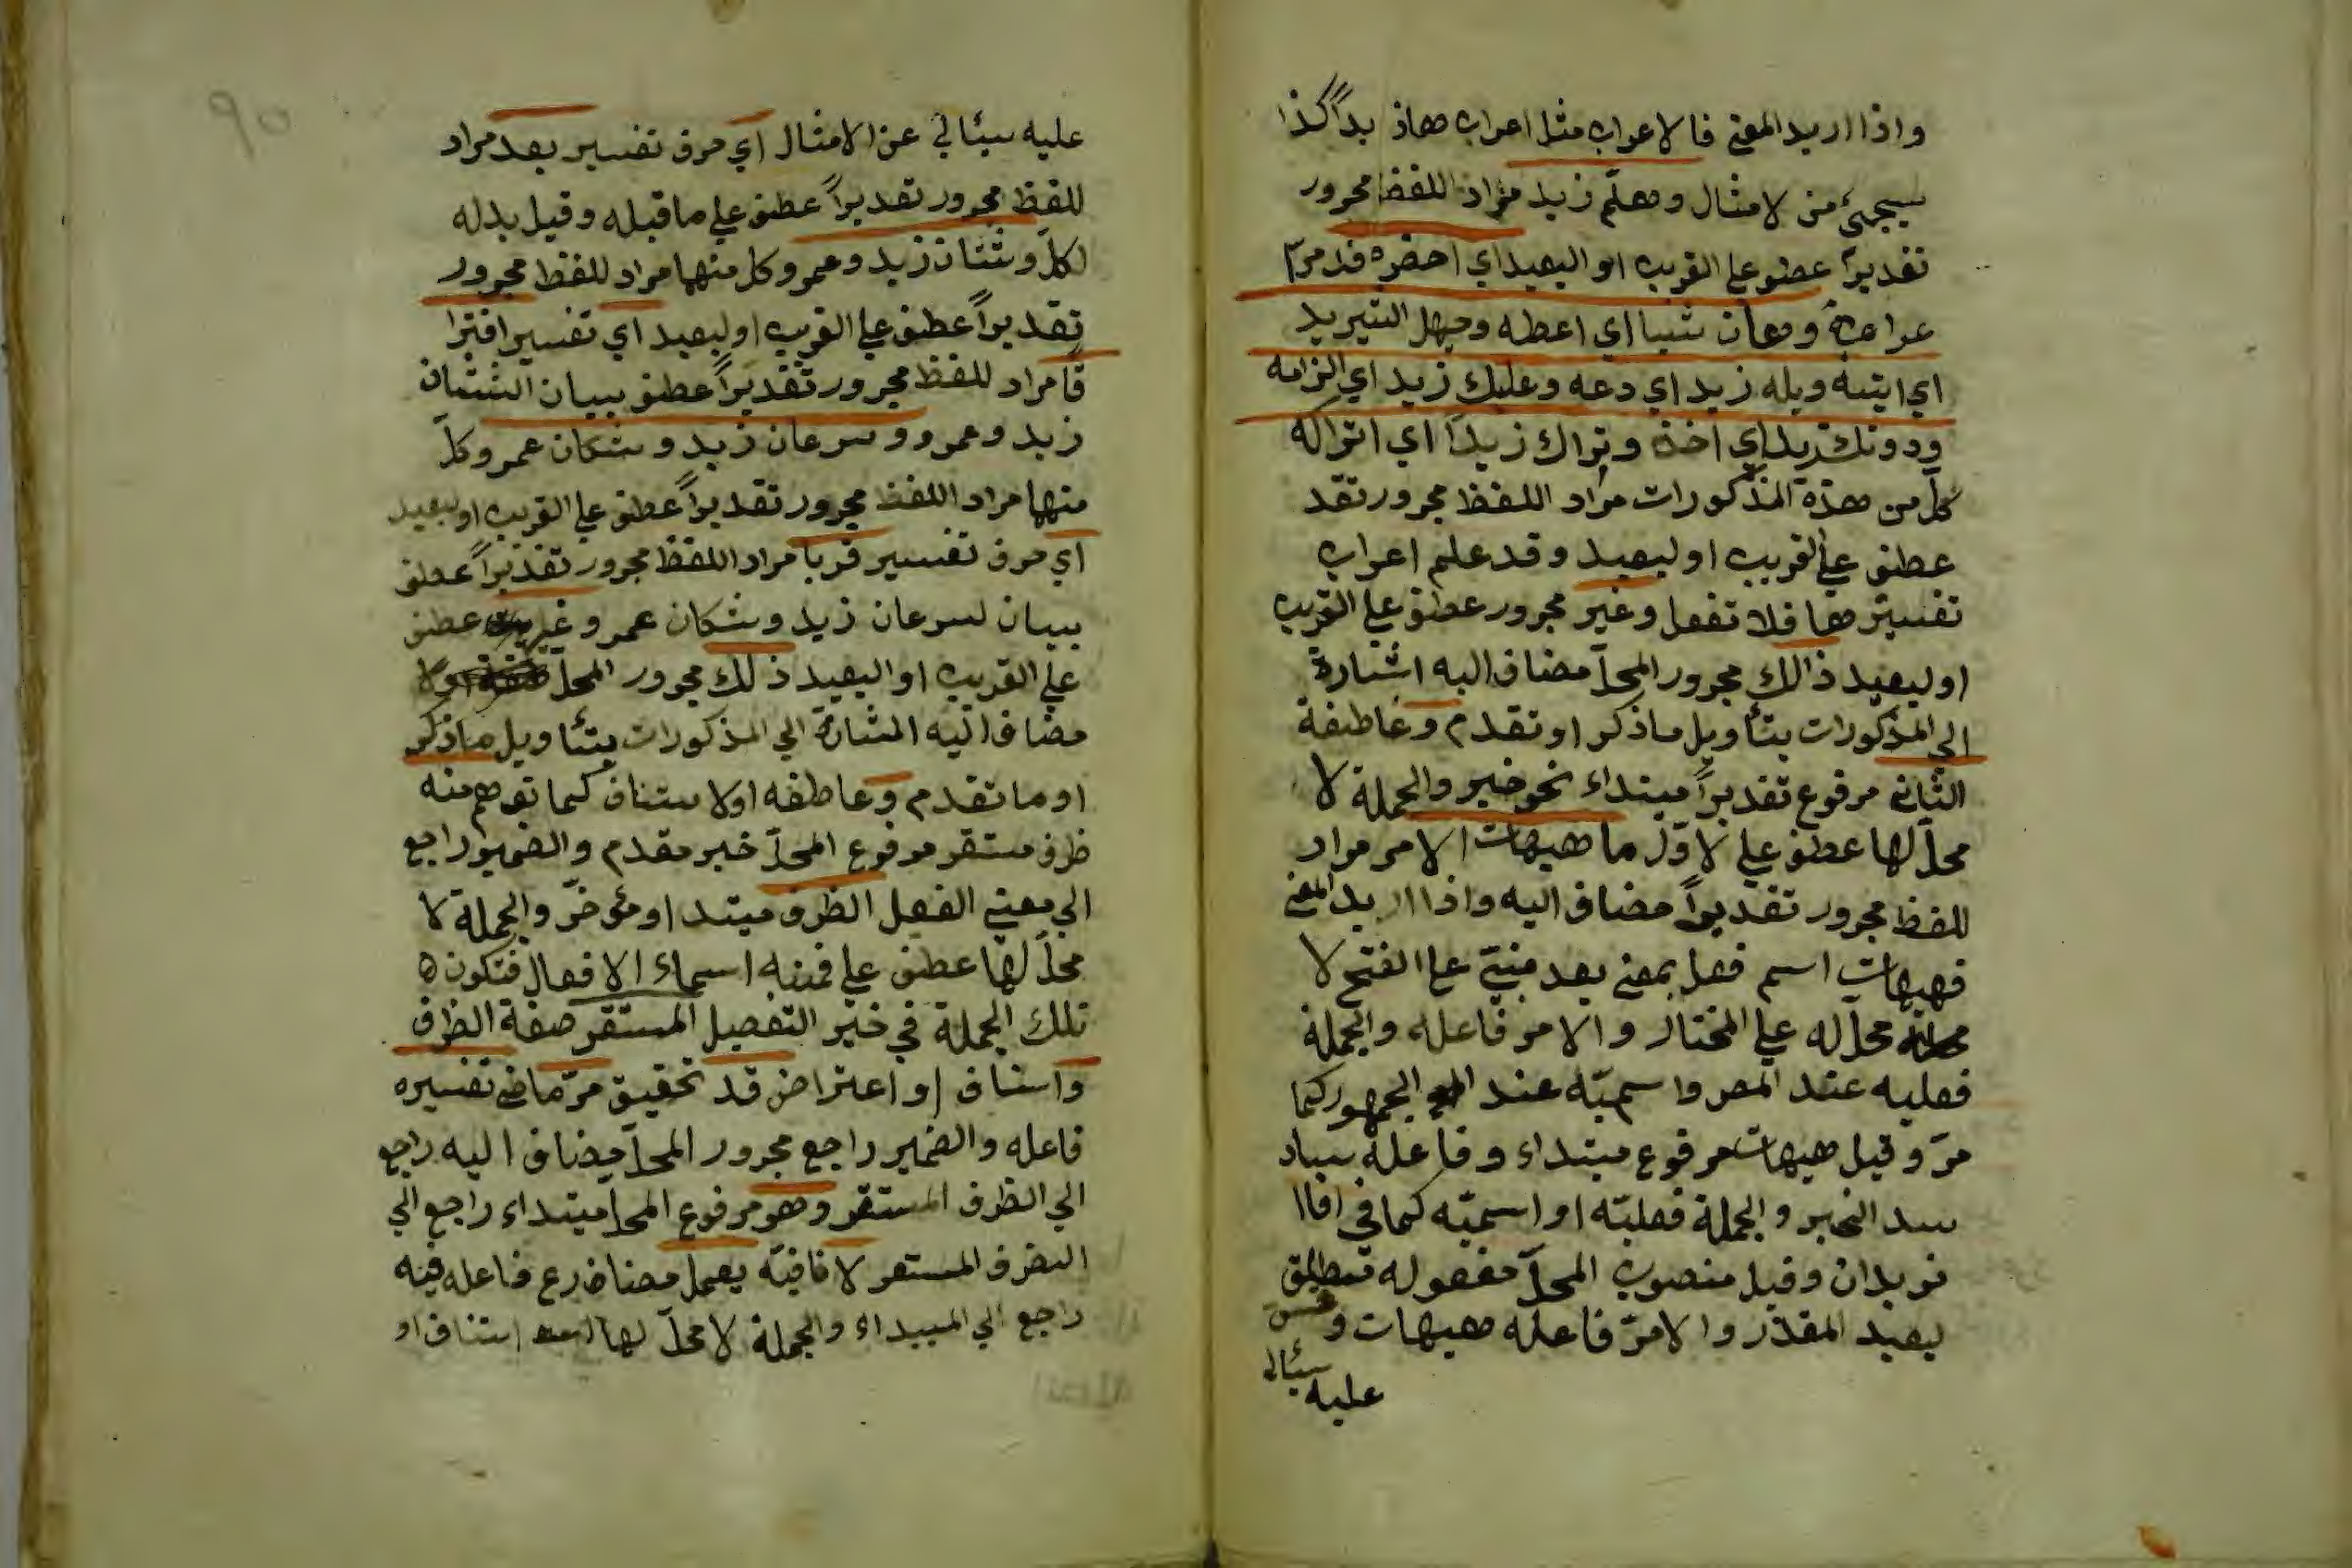 واذا اريد المعنى فالاعراب مثل اعراب هاذ بداً كذا
سيجئ من لامثال وهلمّ زيد مراد اللفظ مجرور
تقديراً عطف على القريب او البعيد اي احضره قد مرّ
اعرابه وهات شيئا اي اعطه وحيهل الثيريد
اي ايتيه وبله زيد اي دعه وعليك زيد اي الزامه
ودونك زيد اي اخذه وتراك زيداً اي اتراكه
كلّ من هذة المذكورات مراد اللفظ مجرور تقد
عطف على القريب او لبعيد وقد علم اعراب
تفسيرها فلا تغفل وغير مجرور عطف على القريب
او لبعيد ذالك مجرور المحلّ مضاف اليه اشارة
الى المذكورات بتأويل ما ذكر او تقدم وعاطفة
الثانى مرفوع تقديراً مبتداء نحو خبر والجملة لا
محلّ لها عطف على لاوّل ما هيهات الامر مراد
للفظ مجرور تقديراً مضاف اليه واذا اريد المعنى
فهيهات اسم فعل بمعنى بعد مبنىّ على الفتح لا
محلّ له على المختار والامر فاعله والجملة
فعليه عند المصر واسميّه عند الجمهور كما
مرّ وقيل هيهات مرفوع مبتداء وفاعله ساد
سد الخبر والجملة فعليّه او اسميّه كما في اقاا
نو يدان وقيل منصوب المحلّ مفعول له مطلق
لبعيد المقدّر والامرّ فاعله هيهات وقس
عليه سئالى
عليه سيئالي عن الامثال اي حرف تفسير بعد مراد
للفظ مجرور تقديراً عطف على ماقبله وقيل بدله
لكلّ وشتان زيد وعمر وكل منهما مراد للفظ مجرور
تقديراً عطف على القريب او لبعيد اي تفسير افترا
قا مراد للفظ مجرور تقديراً عطف ببيان الشتان
زيد وعمرو وسرعان زيد وشكان عمر وكلّ
منهما مراد اللفظ مجرور تقديراً عطف على القريب او لبعيد
اي حرف تفسير قربا مراد اللفظ مجرور تقديراً عطف
ببيان لسرعان زيد وشكان عمر وغير عطف
على القريب او البعيد ذلك مجرور المحلّ اولا
مضاف اليه المشارة الي المذكورات بتئاويل ما ذكر
او ما تقدم وعاطفه اولاستناف كما توهم منه
ظرف مستقر مرفوع المحلّ خبر مقدم والضمير راجع
الي معني الفعل الظرف مبتدا ومئوخّر والجملة لا
محلّ لها عطف على فمنه اسماء الافعال فتكون ه
تلك الجملة في خير التفصيل المستقر صفة الظرف
واسناف او اعتراض قد تحقيق مرّ ماض تفسيره
فاعله والضمير راجع مجرور المحلّ مضاف اليه راجع
الي الظرف المستقر وهو مرفوع المحلّ مبتداء راجع الي
الظرف المستعر لا نافيّة يعمل مضارع فاعله فيه
راجع الي المبيداء والجملة لا محلّ لها استناف او